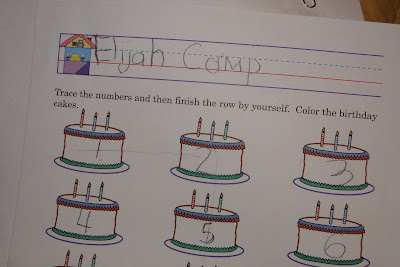 Elijah Camp
Trace the numbers and then finish the row by yourself. Color the birthday
cakes.
1 2 3
4 5 6